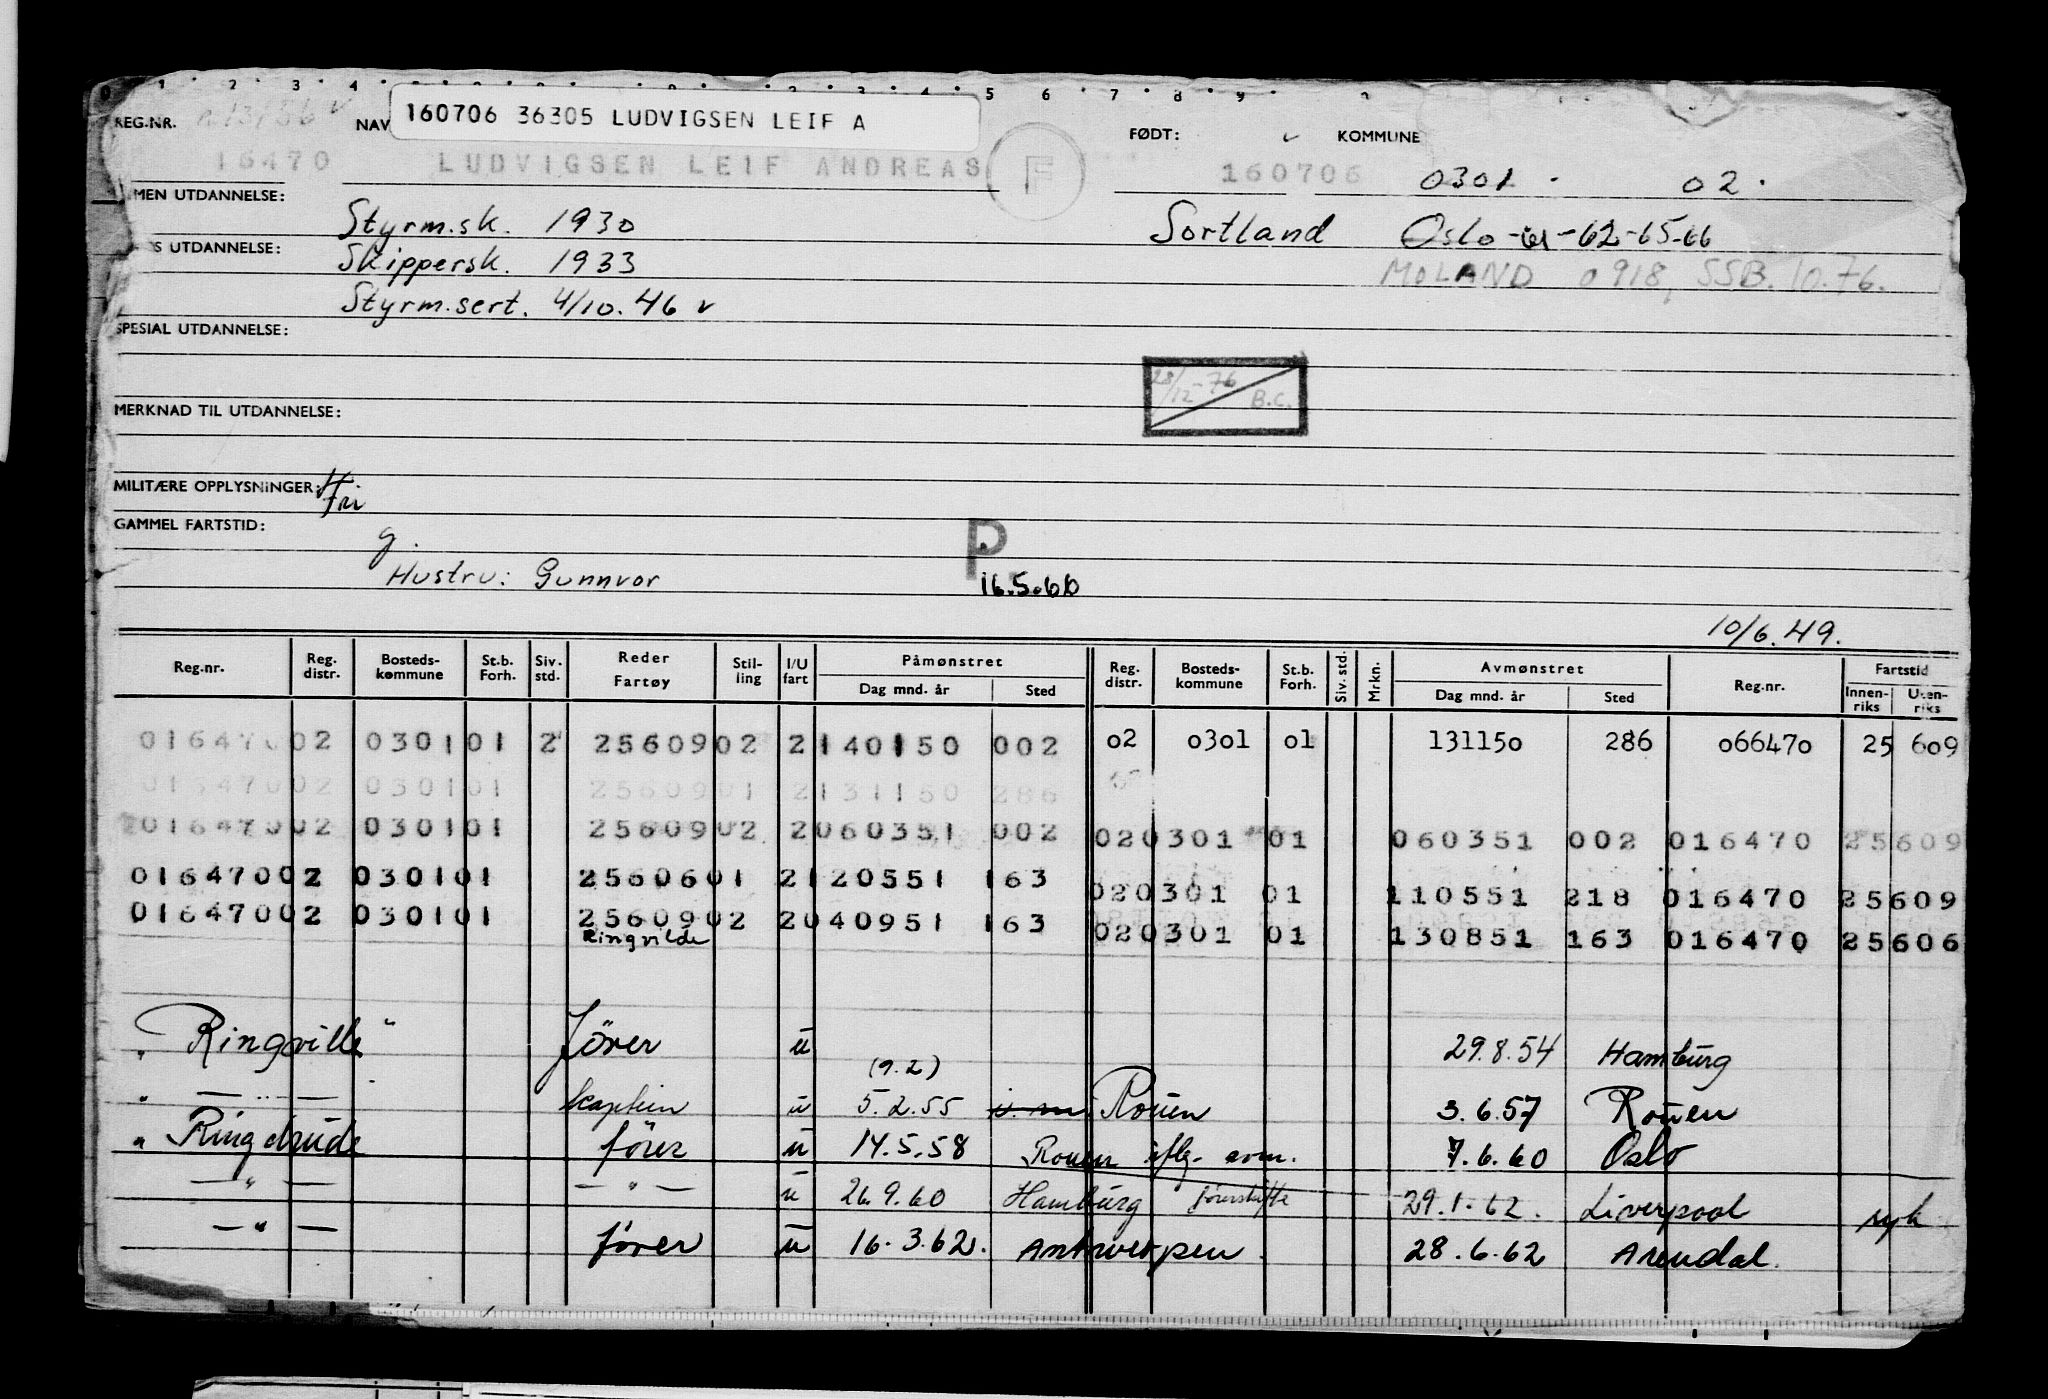 REG.NR. NAV 160706 36305 LUDVIGSEN LEIF A FØDT: KOMMUNE
16470 LUDVIGSEN LEIF ANDREAS F 160706 0301 02.
MEN UTDANNELSE: Styrm.sk. 1930 Sortland Oslo-61-62-65-66
S UTDANNELSE: Skippersk. 1933 MOLAND 0918, SSB. 10.76.
Styrm.sert. 4/10.46 v
SPESIAL UTDANNELSE:
28/12-76 B.C.
MERKNAD TIL UTDANNELSE:
MILITÆRE OPPLYSNINGER:
GAMMEL FARTSTID:
g. P.
Hustru: Gunnvor 16.5.60
10/6.49.
Reg.nr. Reg. distr. Bosteds-kommune St.b. Forh. Siv. std. Reder Fartøy Stil-ling I/U fart Påmønstret Dag mnd. år Sted Reg. distr. Bosteds-kommune St.b. Forh. Siv. std. Mrkn. Avmønstret Dag mnd. år Sted Reg.nr. Fartstid Innen-riks Uten-riks
01647002 030101 2 2560902 2140150 002 02 0301 01 131150 286 066470 25 609
01647002 030101 2560901 2131150 286
01647002 030101 2560902 2060351 002 020301 01 060351 002 016470 25609
01647002 030101 2560601 2120551 163 020301 01 110551 218 016470 25609
01647002 030101 2560902 2040951 163 020301 01 130851 163 016470 25606
Ringvilde
" Ringville " fører u 29.8.54 Hamburg
(9.2)
" — " — kaptein u 5.2.55 Rouen 3.6.57 Rouen
" Ringdrude fører u 14.5.58 Rouen iflg. avm. 7.6.60 Oslo
— " — — " — u 26.9.60 Hamburg førerskifte 29.1.62. Liverpool syk
— " — fører u 16.3.62. Antwerpen. 28.6.62 Arendal.